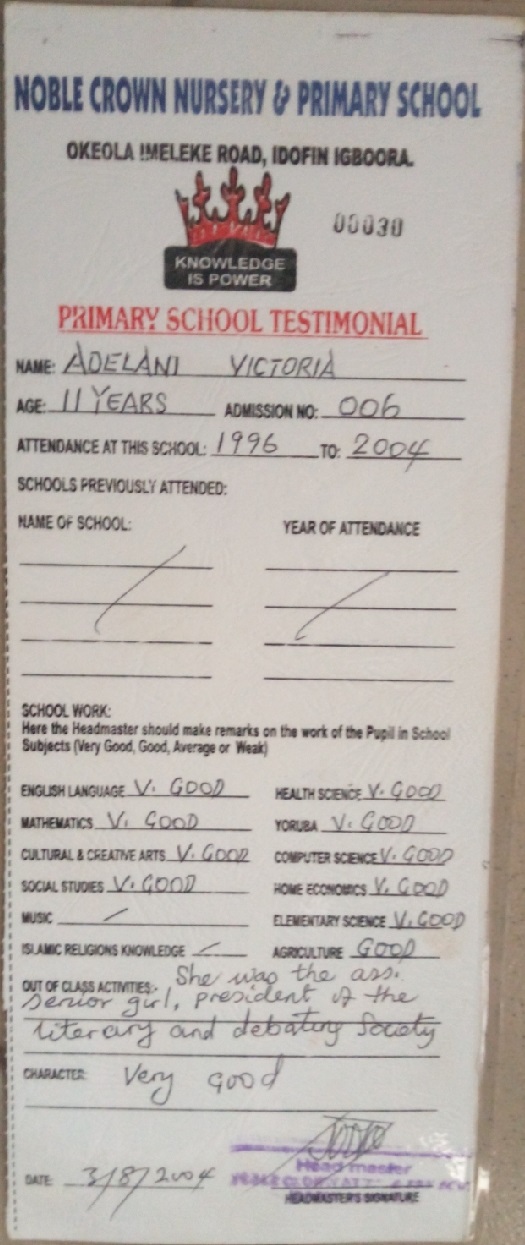 NOBLE CROWN NURSERY & PRIMARY SCHOOL
OKEOLA IMELEKE ROAD, IDOFIN IGBOORA.
00030
KNOWLEDGE
IS POWER
PRIMARY SCHOOL TESTIMONIAL
NAME: ADELANI VICTORIA
AGE: 11 YEARS ADMISSION NO: 006
ATTENDANCE AT THIS SCHOOL: 1996 TO: 2004
SCHOOLS PREVIOUSLY ATTENDED:
NAME OF SCHOOL: YEAR OF ATTENDANCE
SCHOOL WORK:
Here the Headmaster should make remarks on the work of the Pupil in School
Subjects (Very Good, Good, Average or Weak)
ENGLISH LANGUAGE V. GOOD HEALTH SCIENCE V. GOOD
MATHEMATICS V. GOOD YORUBA V. GOOD
CULTURAL & CREATIVE ARTS V. GOOD COMPUTER SCIENCE V. GOOD
SOCIAL STUDIES V. GOOD HOME ECONOMICS V. GOOD
MUSIC ELEMENTARY SCIENCE V. GOOD
ISLAMIC RELIGIONS KNOWLEDGE AGRICULTURE GOOD
OUT OF CLASS ACTIVITIES:- She was the ass.
senior girl, president of the
literary and debating Society
CHARACTER: Very good
Head master
DATE: 3/8/2004
HEADMASTER'S SIGNATURE